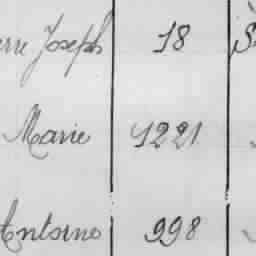 erre Joseph 18
Marie 1221
Antoine 998